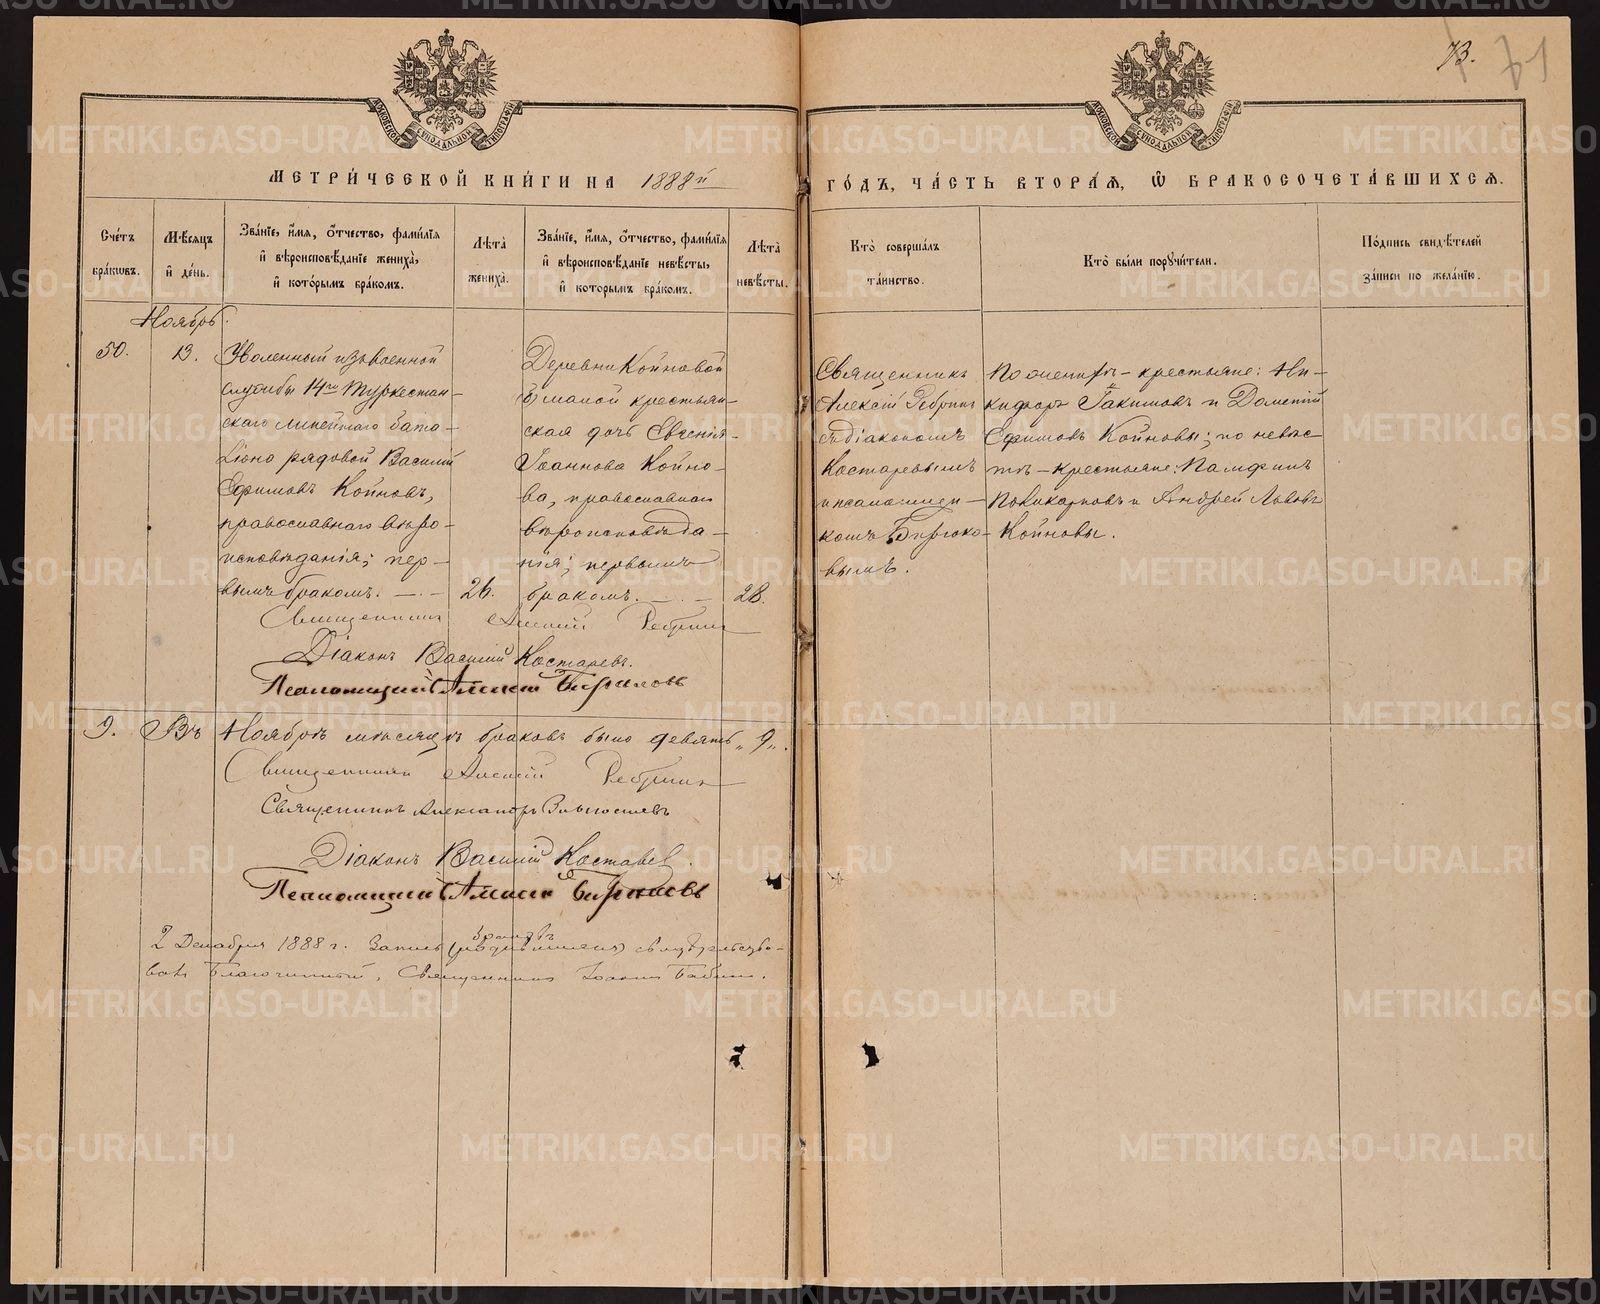 73.
71
МОСКОВСКОЙ СѴНОДАЛЬНОЙ ТИПОГРАФІИ
МОСКОВСКОЙ СѴНОДАЛЬНОЙ ТИПОГРАФІИ
МЕТРИ́ЧЕСКОЙ КНИ́ГИ НА 1888й
ГО́ДЪ, ЧА́СТЬ ВТОРА́Ѧ, Ѽ БРАКОСОЧЕТА́ВШИХСѦ.
Сче́тъ бра́кѡвъ.
Мѣ́сѧцъ и҆ де́нь.
Зва́нїе, и҆́мѧ, ѻ҆́тчество, фами́лїѧ и҆ вѣроисповѣ́данїе жениха̀, и҆ кото́рымъ бра́комъ.
Лѣ́та жениха̀.
Зва́нїе, и҆́мѧ, ѻ҆́тчество, фами́лїѧ и҆ вѣроисповѣ́данїе невѣ́сты, и҆ которымъ бра́комъ.
Лѣ́та невѣ́сты.
Кто̀ соверша́лъ та́инство.
Кто̀ бы́ли порꙋчи́тели.
По́дпись свидѣ́телей за́писи по жела́нїю.
Ноябрь.
50.
13.
Уволенный изъ военной
службы 14го Туркестан-
скаго линейнаго бата-
ліона рядовой Василій
Ефимовъ Койновъ,
православнаго вѣро-
исповѣданія; пер-
вымъ бракомъ.
26.
Деревни Койновой
крестьян-
ская дочь Евгенія
Іоаннова Койно-
ва, православнаго
вѣроисповѣда-
нія; первымъ
бракомъ.
28.
Священникъ
Алексій Ребринъ
съ діакономъ
Костаревымъ
и псаломщи-
комъ Бирюко-
вымъ.
По женихѣ - крестьяне: Ни-
кифоръ Іакимовъ и Дометій
Ефимовъ Койновы; по невѣс-
тѣ - крестьяне: Памфилъ
Поликарповъ и Андрей Львовъ
Койновы.
Священникъ Алексій Ребринъ
Діаконъ Василій Костаревъ.
Псаломщикъ Бирюковъ
9. Въ Ноябрѣ мѣсяцѣ браковъ было девять „9„.
Священникъ Алексій Ребринъ
Священникъ Александръ
Діаконъ Василій Костарев.
Псаломщикъ Бирюковъ
браковъ
2 Декабря 1888 г. Запись (родившихся) свидѣтельство-
валъ Благочинный, Священникъ Іоаннъ Бабинъ.
METRIKI.GASO-URAL.RU